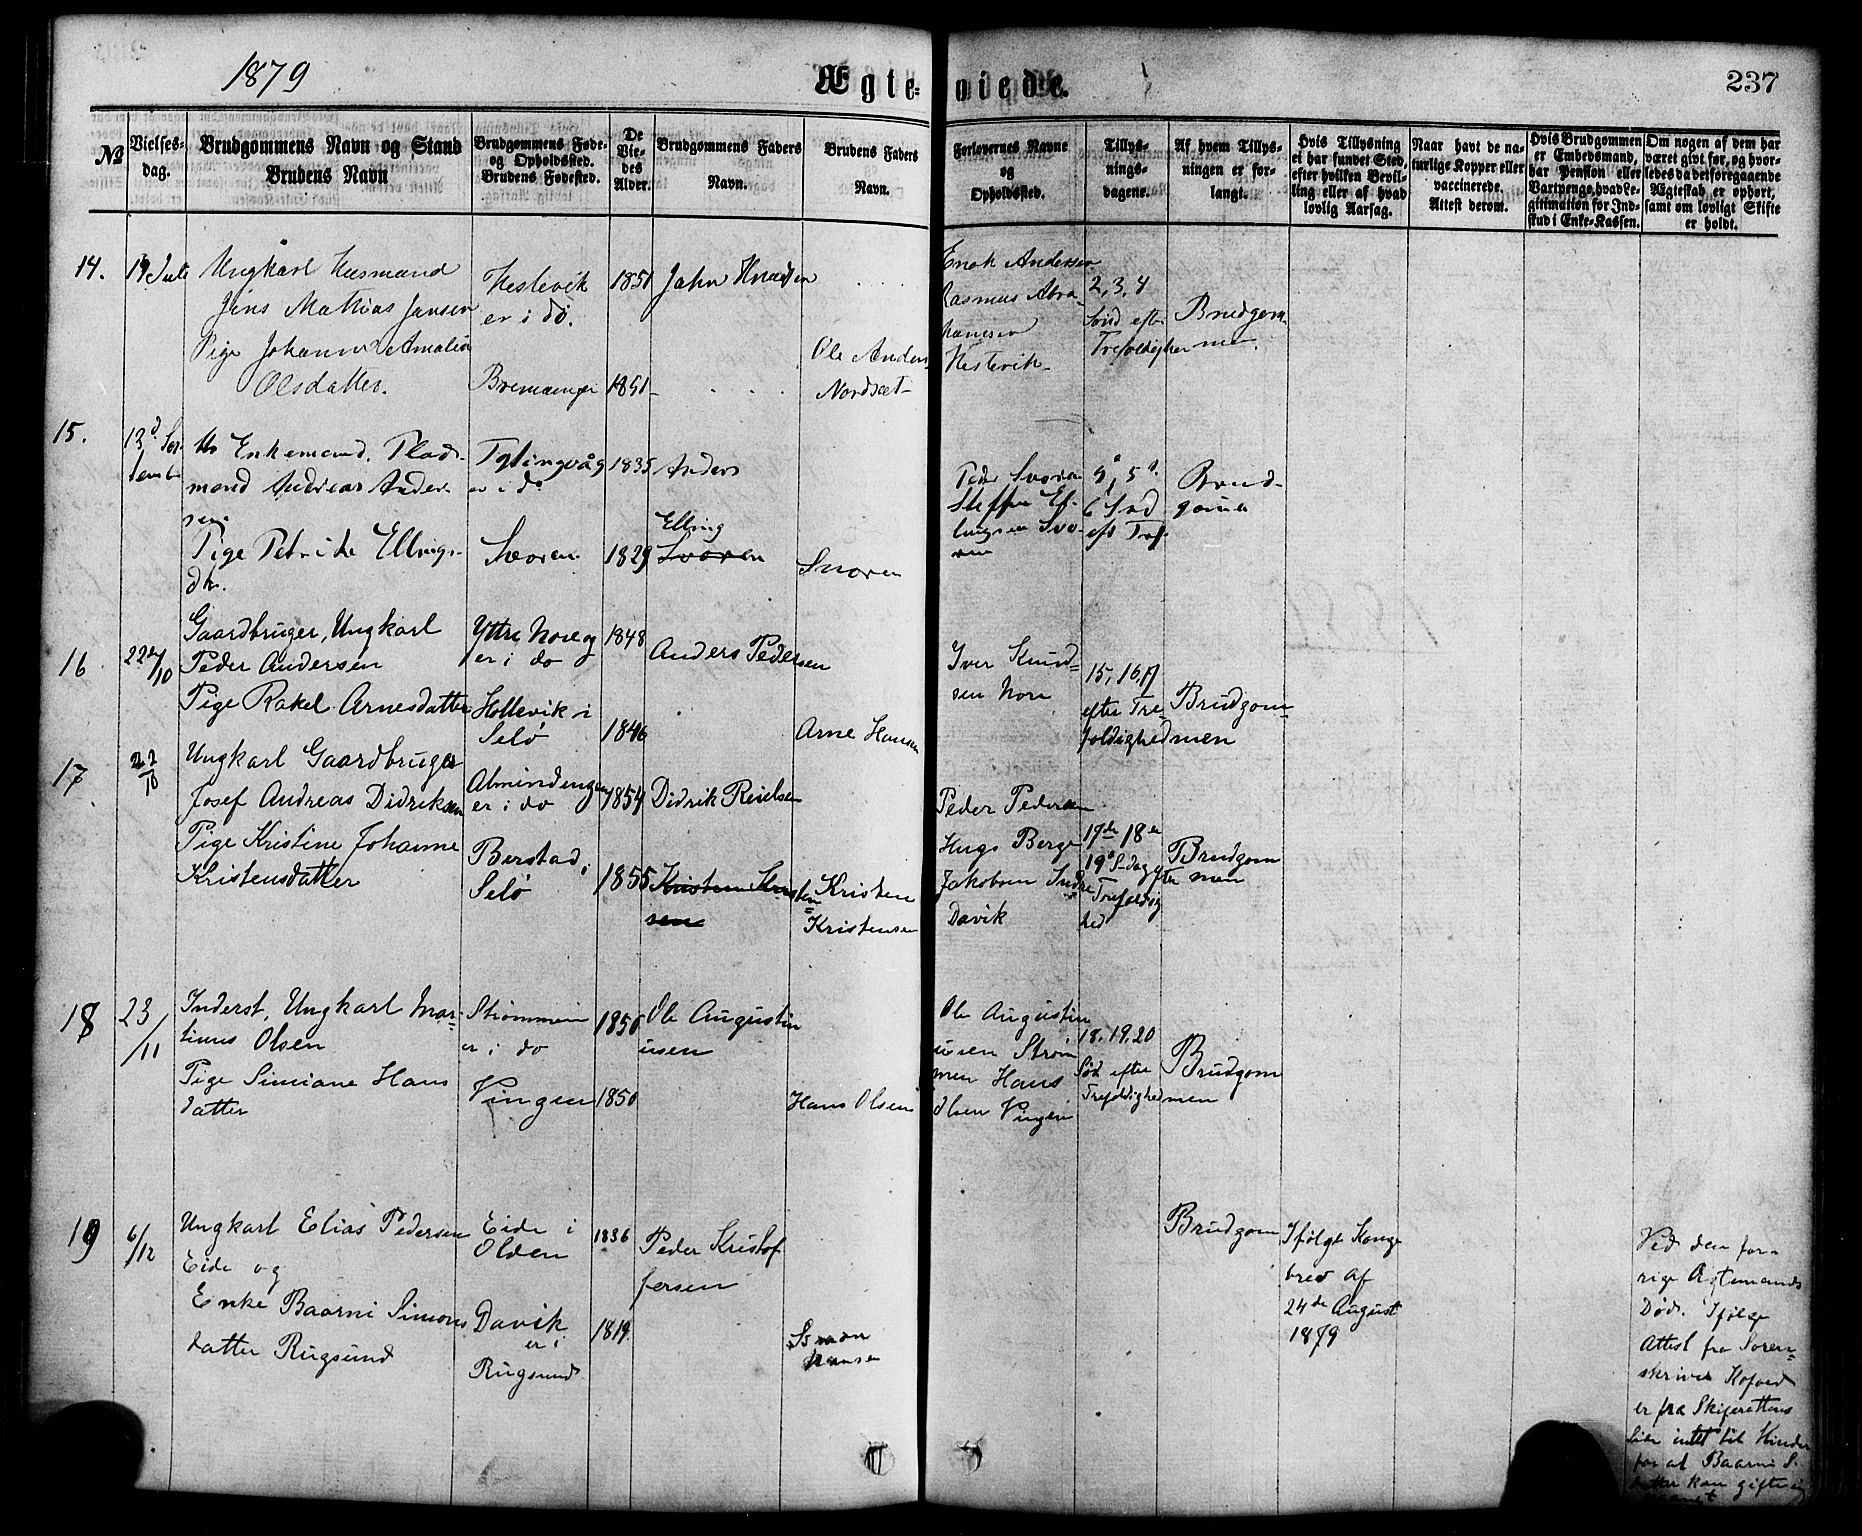 1879
Ægte-
viede.
237
No
Vielses-
dag.
Brudgommens Navn og Stand
Brudens Navn
Brudgommens Føde-
og Opholdssted.
Brudens Fødested.
De
Vie-
des
Alder.
Brudgommens Faders
Navn.
Brudens Faders
Navn.
Forlovernes Navne
og
Opholdssted.
Tillys-
nings-
dagene.
Af hvem Tillys-
ningen er for-
langt.
Hvis Tillysning
ei har fundet Sted,
efter hvilken Bevil-
ling eller af hvad
lovlig Aarsag.
Naar havt de na-
turlige Kopper eller
vaccinerede.
Attest derom.
Hvis Brudgommen
er Embedsmand,
har Pension eller
Vartpenge, hvad Le-
gitimation for Ind-
skud i Enke-Kassen.
Om nogen af dem har
været givt før, og hvor-
ledes da det foregaaende
Ægteskab er ophørt,
samt om lovligt Skifte
er holdt.
14.
Ungkarl Husmand
Jens Mathias Jansen
Pige Johanne Amalia
Olsdatter.
er i do.
Bremanger
1851
1851
Ole Anders
Nordset
Enok Andersen
Rasmus Abra-
hamsen
2, 3, 4
Sønd eft
Brudgom-
men.
15.
Enkemand. Plads-
mand Andreas Ander-
sen
Pige Petrike Ellings-
dtr.
er i do
Svoren
1835
1829
Anders
Elling
Svoren
Svoren
Peder Svoren
Steffen El-
lingsen Svo-
ren
6 Snd
eft Tref.
Brud-
gomen
16
22de/10
Gaardbruger, Ungkarl
Peder Andersen
Pige Rakel Arnesdatter
Yttre Nore og
er i do
Hollevik i
Selø
1848
1846
Anders Pedersen
Arne Hansen
Iver Knud-
sen Nore
15, 16, 17
efter Tre-
foldighed
Brudgom-
men
17
22/10
Ungkarl Gaardbruger
Josef Andreas Didriksen
Pige Kristine Johanne
Kristensdatter
Almindingen
er i do
Berstad i
Selø
1854
1855
Didrik Reielsen
Kristen Kristen
sen
Kristen
Kristensen
Peder Pedersen
Hugs Berge
Jakobsen Indre
Davik
17de 18de
19de S-dag eft
Trefoldig
hed
Brudgom
men
18
23/11
Inderst, Ungkarl Mar-
tinus Olsen
Pige Simiane Hans
datter
Strømmen
er i do
Vingen
1850
1850
Ole Augustin
usen
Hans Olsen
Ole Augustin
usen Strøm
men Hans
Olsen Vingen
18, 19, 20
Sød efter
Trefoldighed
Brudgom
men
19
6/12
Ungkarl Elias Pedersen
Eide og
Enke Baarni Simons
datter Rugsund
Eide i
Olden
Davik
er i
Rugsund
1836
1819
Peder Kristof
fersen
Simon
Hansen
Brudgom
Ifølge Konge
brev af
24de August
1879
Ved den for-
rige Ægtemands
Død. Ifølge
Attest fra Soren-
skriver Kofoed
er fra Skifterettens
Side intet til Hinder
for at Baarni S.
datter kan gifte sig